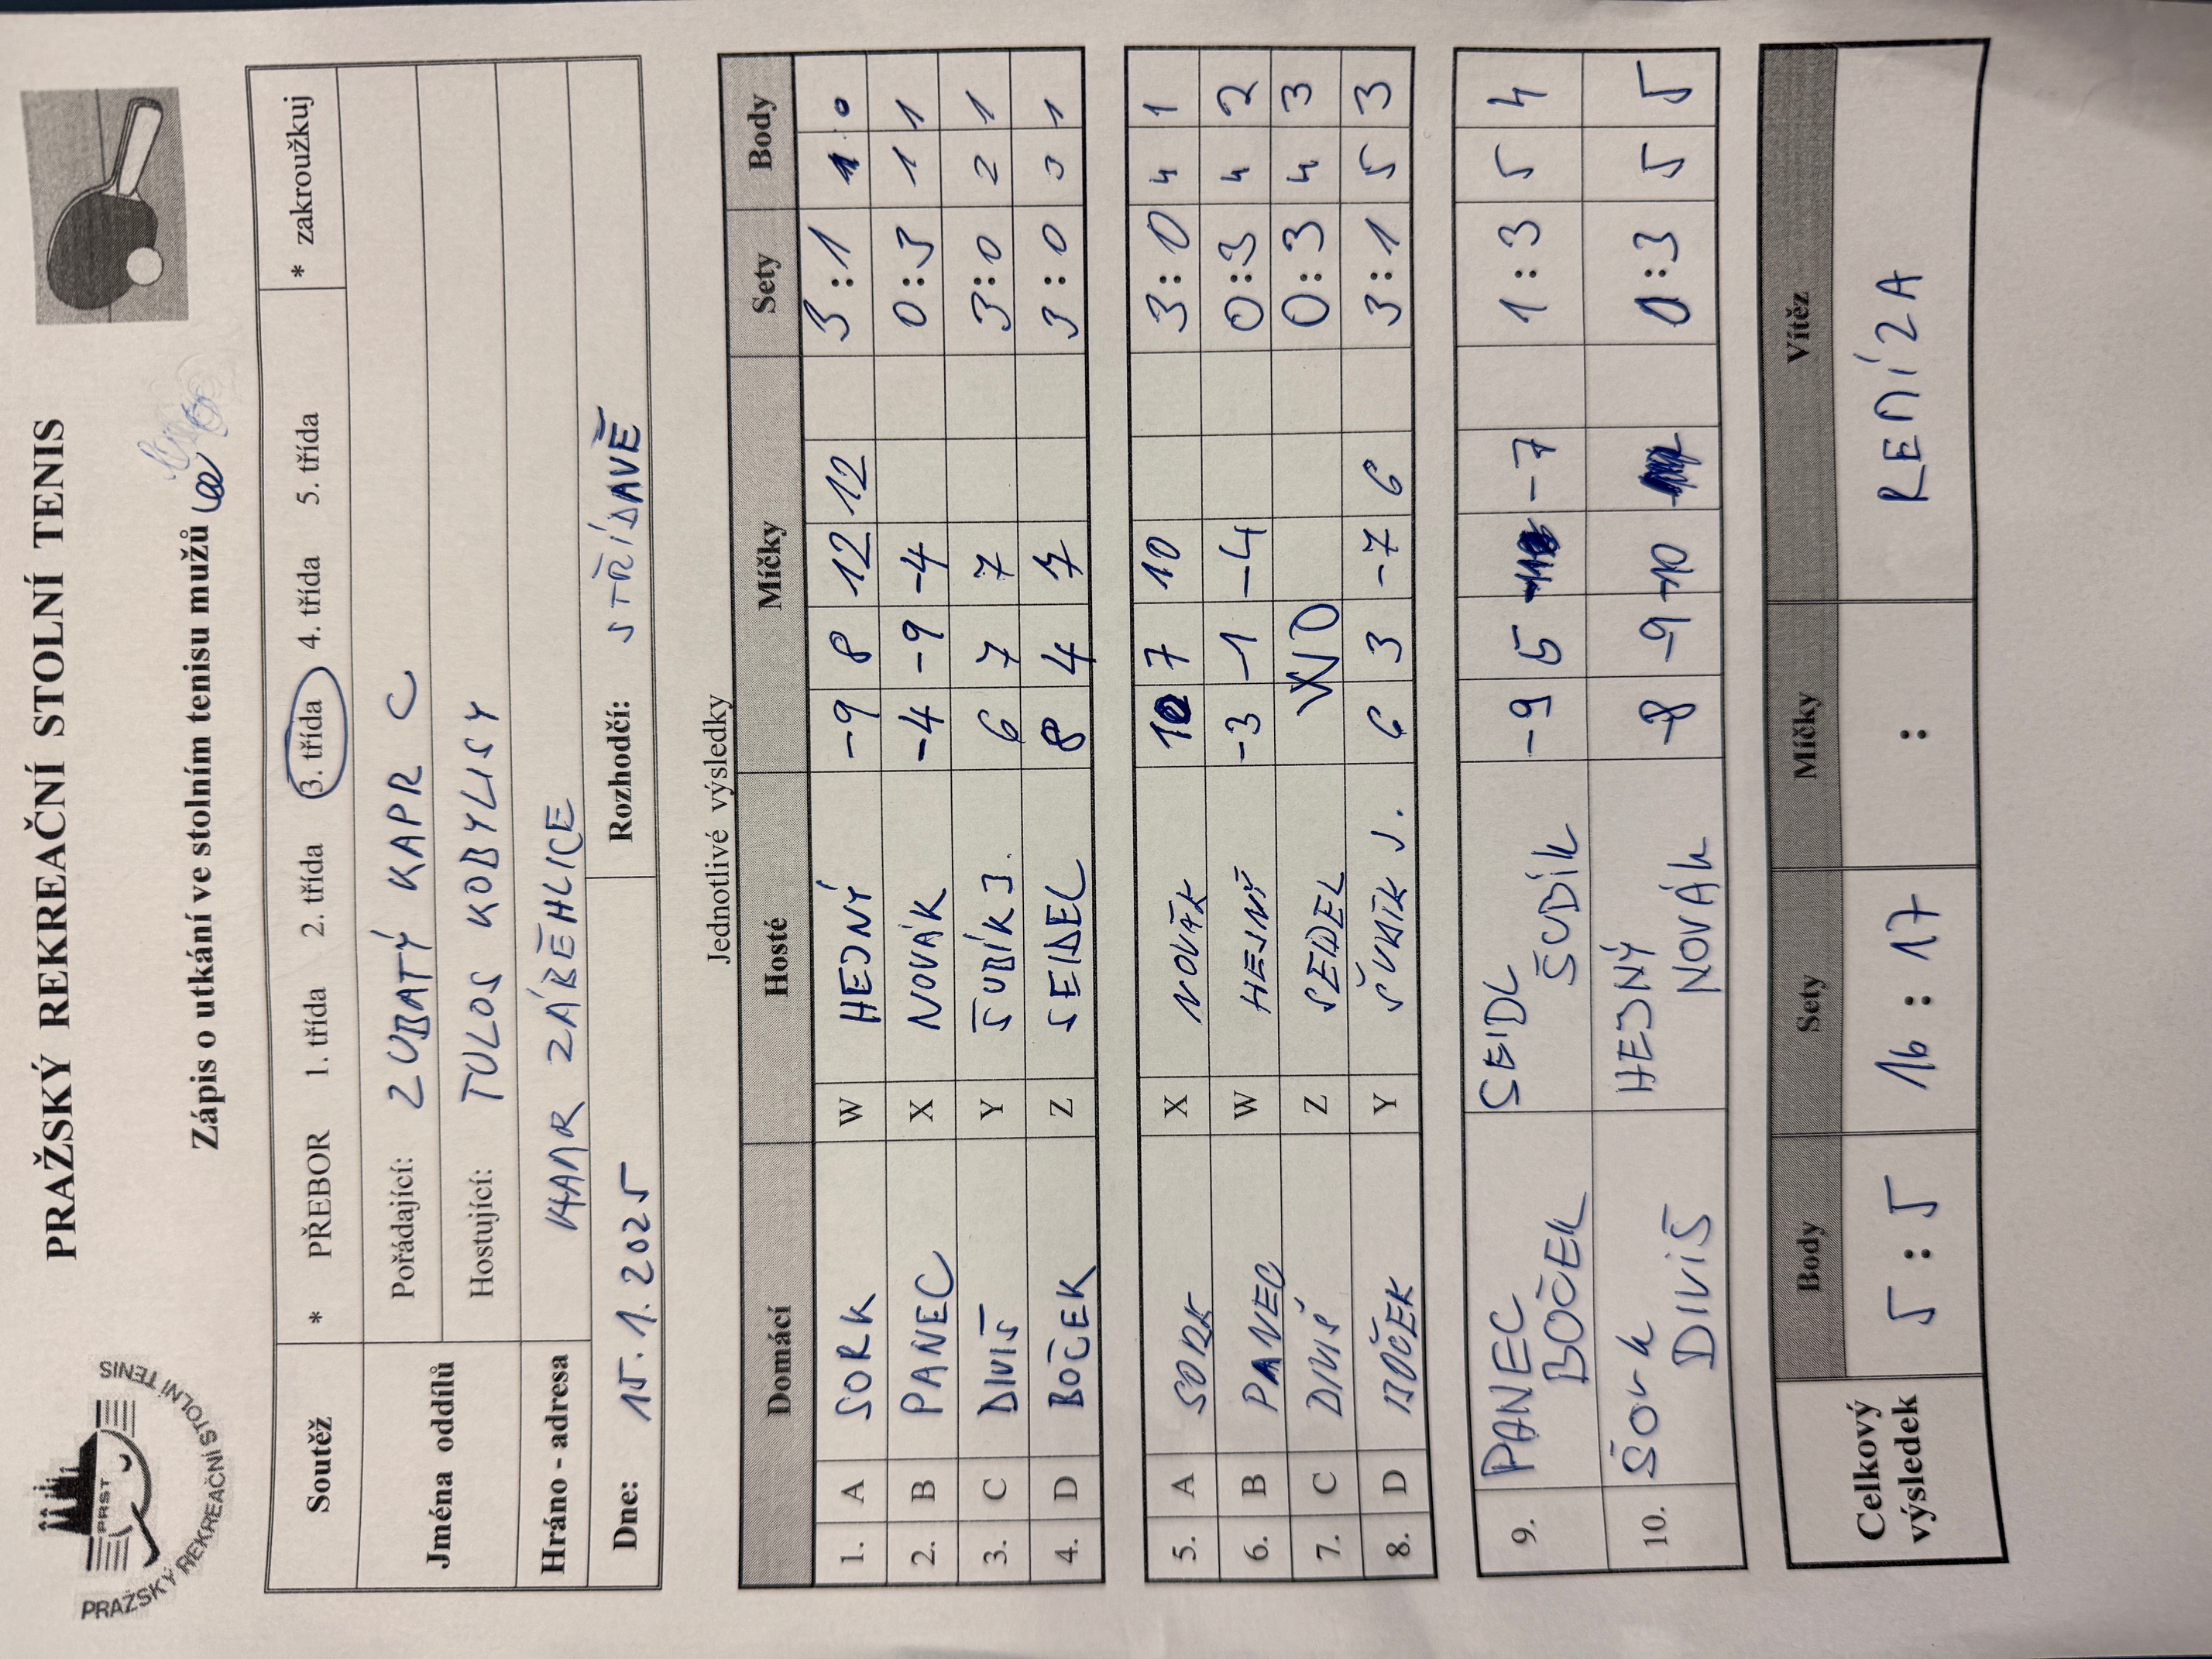 PRAŽSKÝ REKREAČNÍ STOLNÍ TENIS
PRST
PRAŽSKÝ REKREAČNÍ STOLNÍ TENIS
Zápis o utkání ve stolním tenisu mužů
Soutěž * PŘEBOR 1. třída 2. třída 3. třída 4. třída 5. třída * zakroužkuj
Jména oddílů Pořádající: ZUBATÝ KAPR C
Hostující: TULOS KOBYLISY
Hráno - adresa KHAR ZÁBĚHLICE
Dne: 15.1.2025 Rozhodčí: STŘÍDAVĚ
Jednotlivé výsledky
Domácí Hosté Míčky Sety Body
1. A SORK W HEJNÝ -9 8 12 12 3:1 1 0
2. B PANEC X NOVÁK -4 -9 -4 0:3 1 1
3. C DIVIŠ Y ŠUDÍK J. 6 7 7 3:0 2 1
4. D BOČEK Z SEIDEL 8 4 7 3:0 3 1
5. A SORK X NOVÁK 10 7 10 3:0 4 1
6. B PANEC W HEJNÝ -3 -1 -4 0:3 4 2
7. C DIVIŠ Z SEIDEL WO 0:3 4 3
8. D BOČEK Y ŠUDÍK J. 6 3 -7 6 3:1 5 3
9. PANEC SEIDL -9 5 -7 1:3 5 4
BOČEK ŠUDÍK
10. ŠORK HEJNÝ -8 -9 -10 0:3 5 5
DIVIŠ NOVÁK
Celkový výsledek Body Sety Míčky Vítěz
5:5 16:17 : REMÍZA